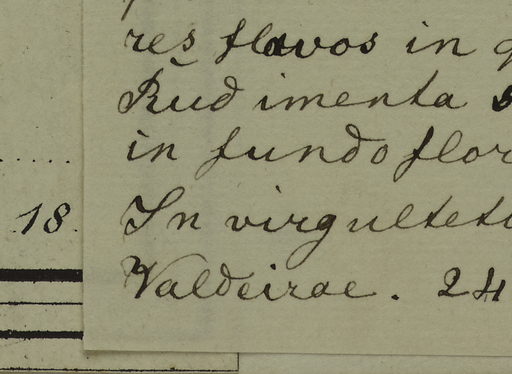 res flavos in
Rudimenta
in fundo flor
18.
In virgulteti
Valdeirae. 24